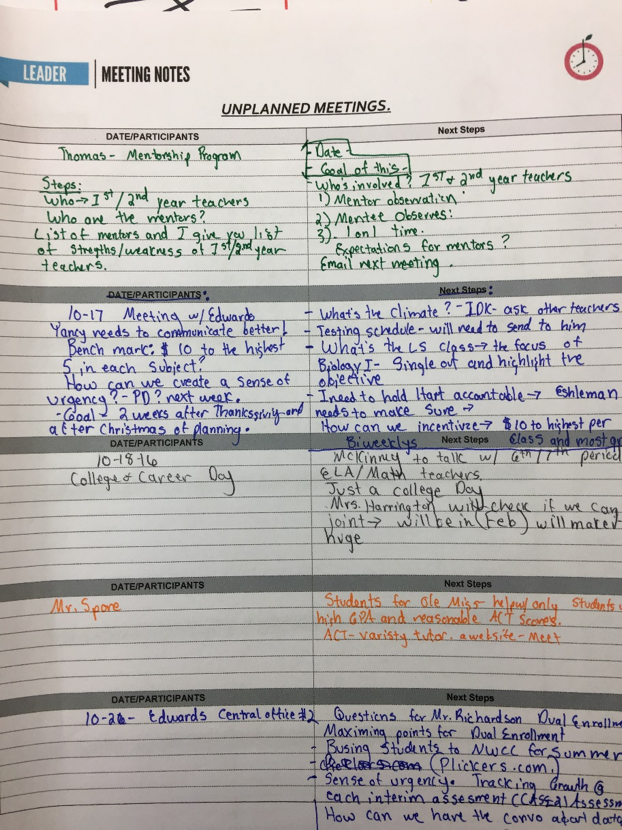 LEADER | MEETING NOTES
UNPLANNED MEETINGS.
DATE/PARTICIPANTS
Thomas- Mentorship Program
Steps:
Who→ 1st/2nd year teachers
Who are the mentors?
List of mentors and I give you list
of stregths/weakness of 1st/2nd year
teachers.
Next Steps
- Date-
- Goal of this-
- Who's involved? 1st & 2nd year teachers
1) Mentor observation
2) Mentee Observes:
3). 1 on 1 time.
Expectations for mentors?
Email next meeting.
DATE/PARTICIPANTS:
10-17 Meeting w/ Edwards
Yancy needs to communicate better!
Bench mark: $10 to the highest
5 in each subject?
How can we create a sense of
urgency? - PD? next week.
-Goal- 2 weeks after Thanksgiving and
after Christmas of planning.
Next Steps:
- What's the climate? - IDK- ask other teachers
- Testing schedule- will need to send to him
- What's the LS class→ the focus of
Biology I- Single out and highlight the
objective
- I need to hold Hart accountable→ Eshleman
needs to make sure→
How can we incentivize→ $10 to highest per
Biweeklys Class and most
DATE/PARTICIPANTS
10-18-16
College & Career Day
Next Steps
McKinney to talk w/ 6th/7th period
ELA/Math teachers.
Just a college Day
Mrs. Harrington will check if we can
joint→ will be in (Feb) will make
huge
DATE/PARTICIPANTS
Mr. Spane
Next Steps
Students for Ole Miss- only students
high GPA and reasonable ACT scores.
ACT- varisty tutor. a website- Meet
DATE/PARTICIPANTS
10-26- Edwards Central office #2
Next Steps
Questions for Mr. Richardson Dual Enrollme
Maximing points for Dual Enrollment
- Busing students to NWCC for summer
- (Plickers.com)
- Sense of urgency. Tracking Growth @
each interim assesment (CASE21) Assessm
How can we have the convo about data